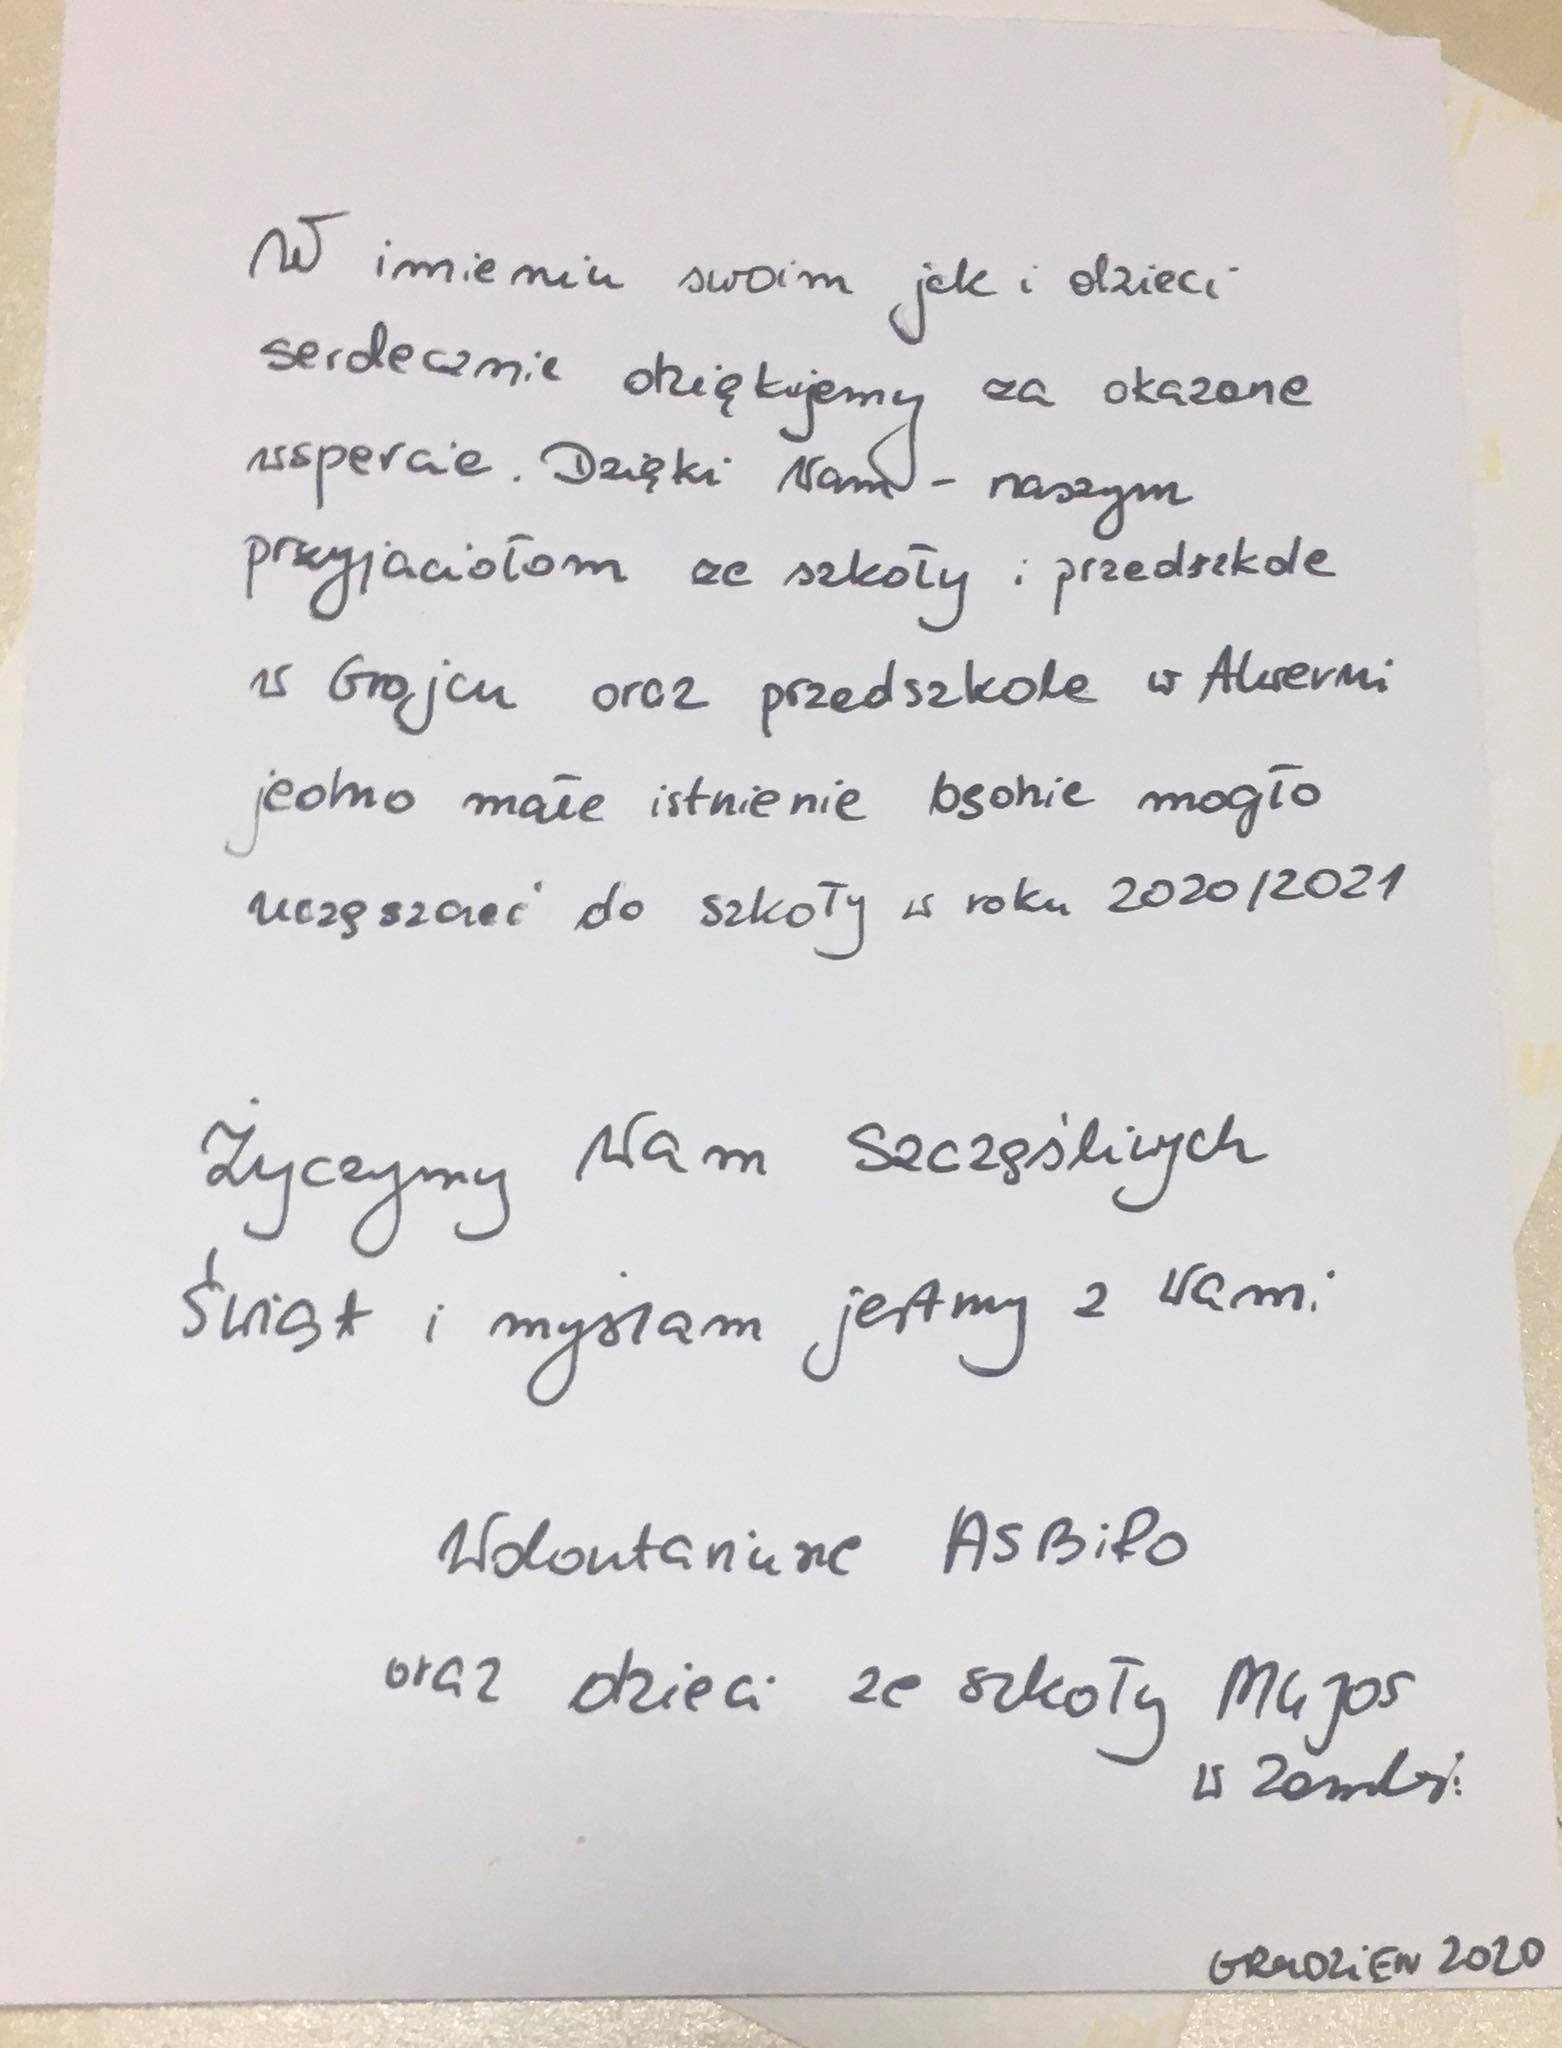 W imieniu swoim jak i dzieci
serdecznie dziękujemy za okazane
wsparcie. Dzięki Wam - naszym
przyjaciołom ze szkoły i przedszkole
w Grojcu oraz przedszkole w Alwerni
jedno małe istnienie będzie mogło
uczęszczać do szkoły w roku 2020/2021
Życzymy Wam Szczęśliwych
Świąt i myślam jesteśmy z Wami
Wolontariusze ASBiRo
oraz dzieci ze szkoły Mugos
w Zambi
GRUDZIEN 2020